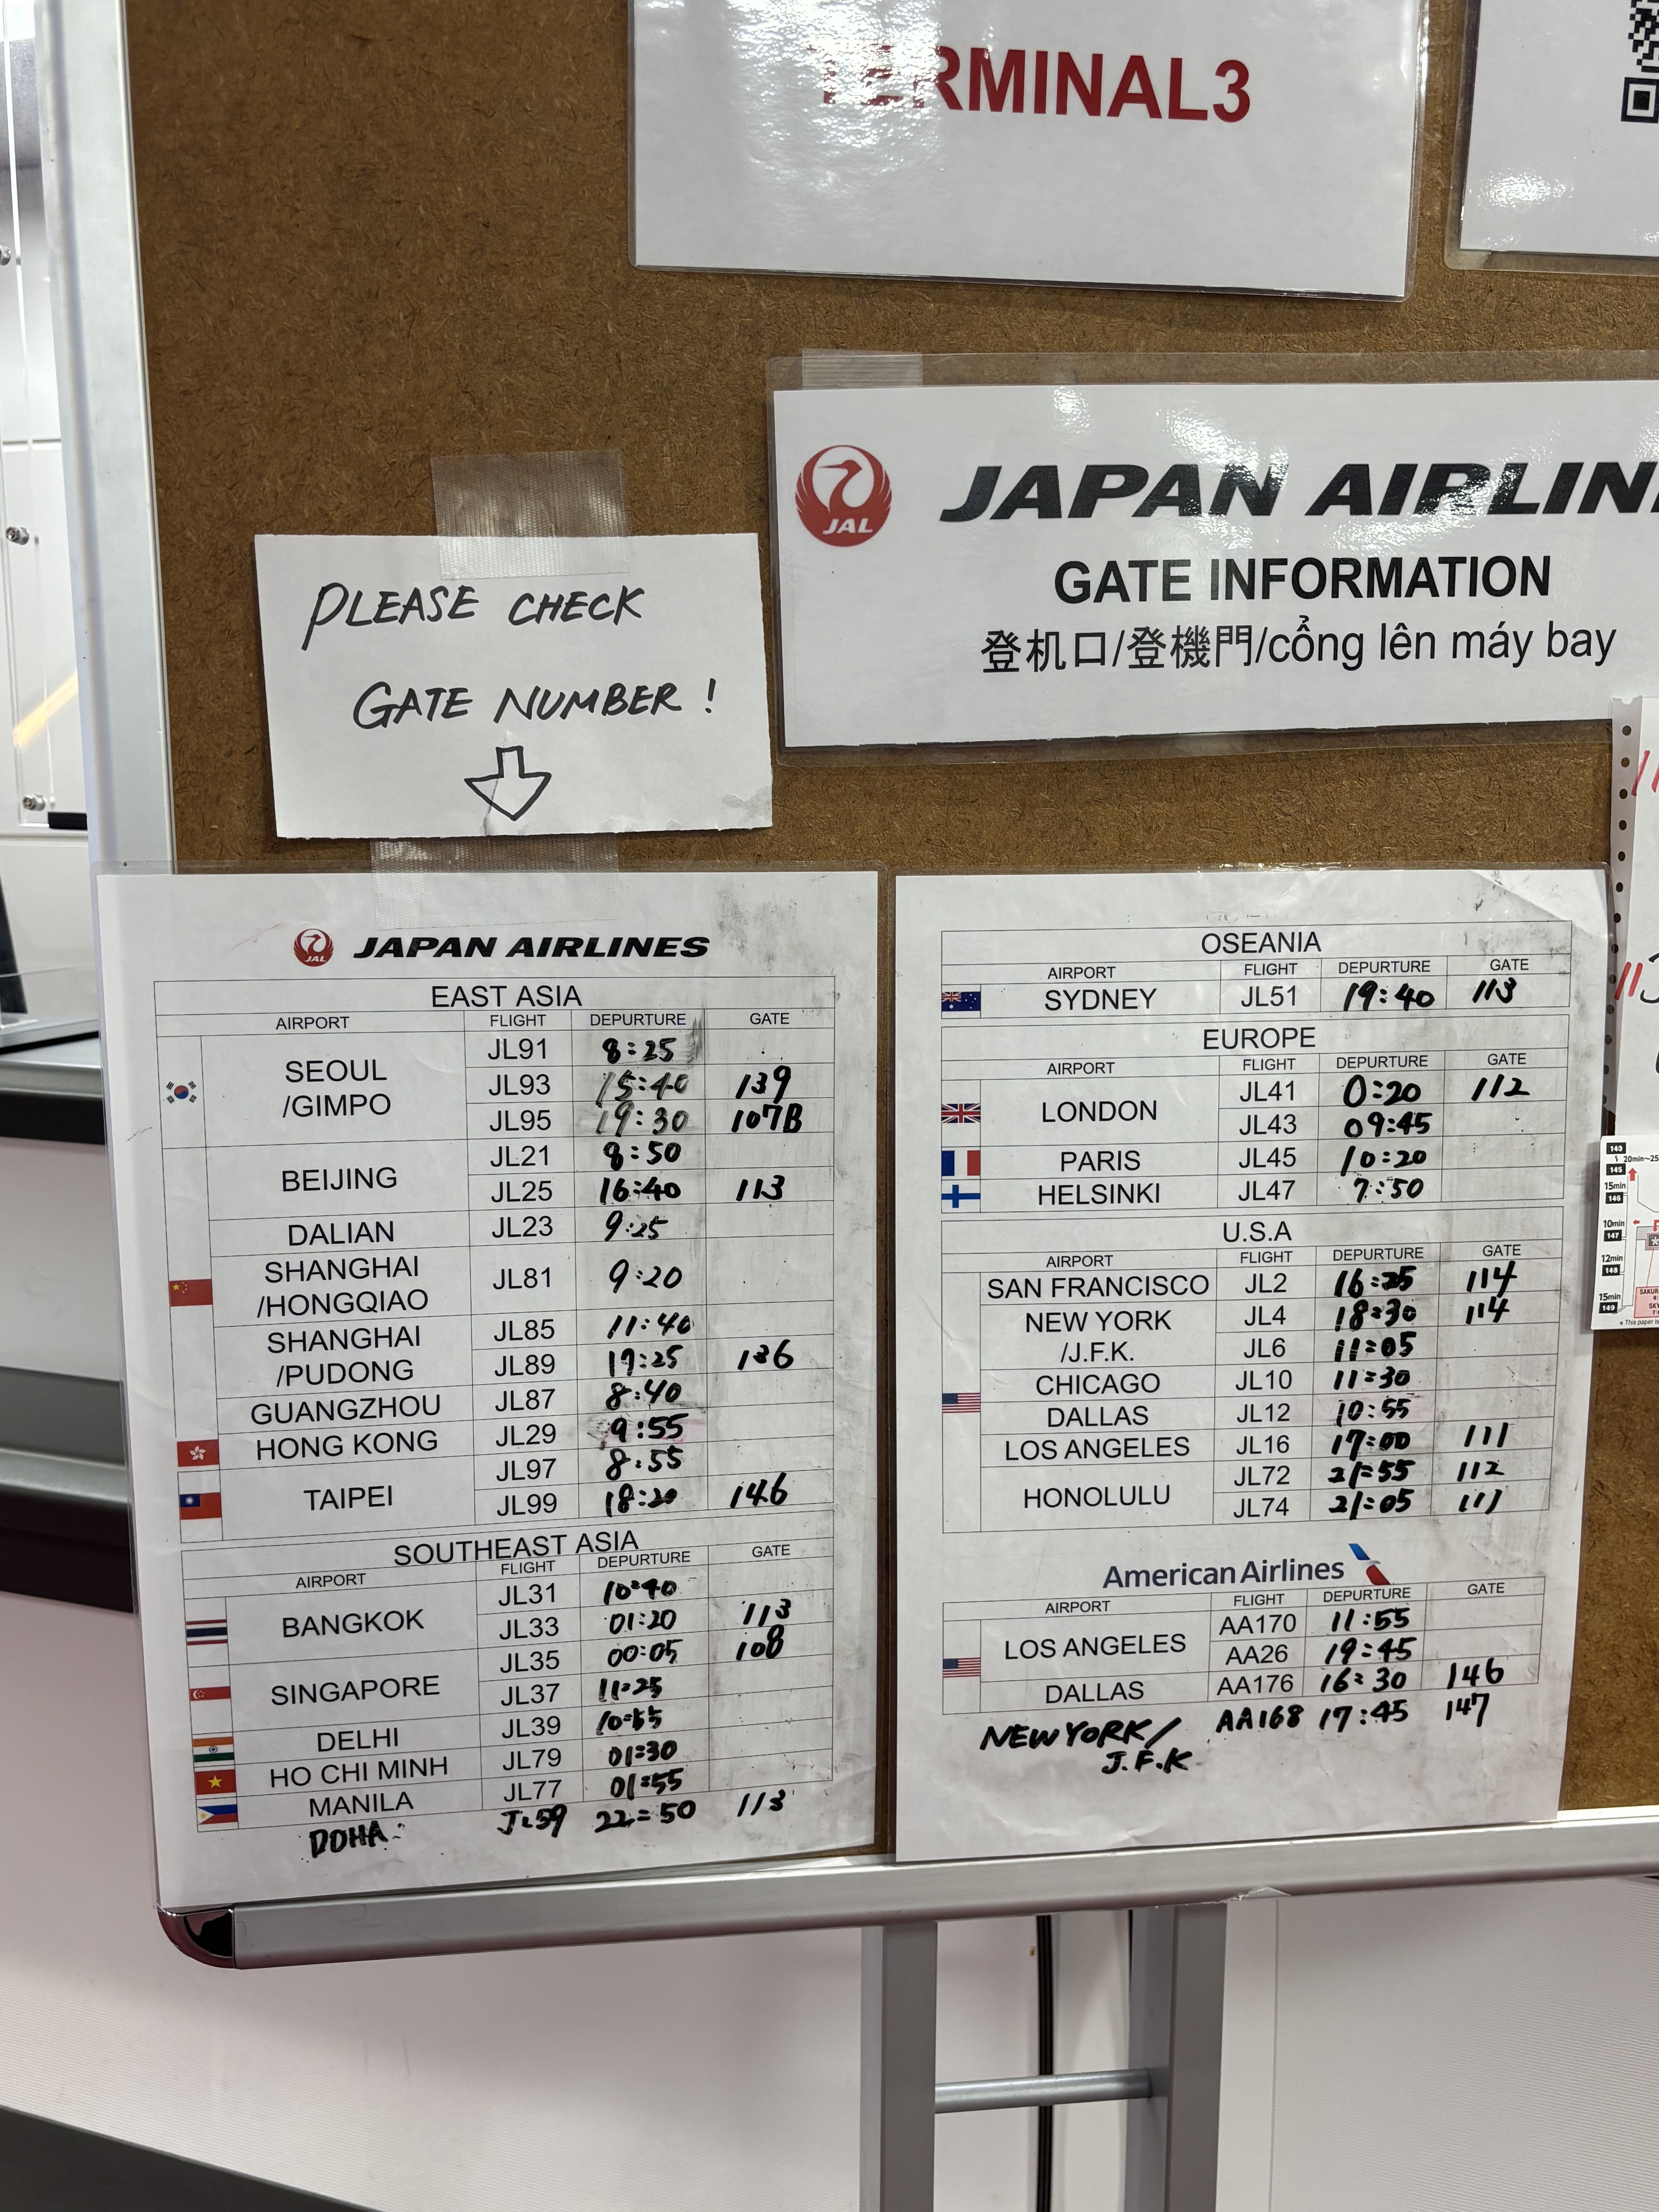 TERMINAL3
JAL JAPAN AIRLIN
GATE INFORMATION
登机口/登機門/cổng lên máy bay
PLEASE CHECK
GATE NUMBER!
JAL JAPAN AIRLINES
EAST ASIA
AIRPORT FLIGHT DEPURTURE GATE
SEOUL /GIMPO JL91 8:25
JL93 15:40 139
JL95 19:30 107B
BEIJING JL21 8:50
JL25 16:40 113
DALIAN JL23 9:25
SHANGHAI /HONGQIAO JL81 9:20
SHANGHAI /PUDONG JL85 11:40
JL89 17:25 136
GUANGZHOU JL87 8:40
HONG KONG JL29 9:55
TAIPEI JL97 8:55
JL99 18:20 146
SOUTHEAST ASIA
AIRPORT FLIGHT DEPURTURE GATE
BANGKOK JL31 10:40
JL33 01:20 113
SINGAPORE JL35 00:05 108
JL37 11:25
DELHI JL39 10:55
HO CHI MINH JL79 01:30
MANILA JL77 01:55
DOHA JL59 22:50 113
OSEANIA
AIRPORT FLIGHT DEPURTURE GATE
SYDNEY JL51 19:40 113
EUROPE
AIRPORT FLIGHT DEPURTURE GATE
LONDON JL41 0:20 112
JL43 09:45
PARIS JL45 10:20
HELSINKI JL47 7:50
U.S.A
AIRPORT FLIGHT DEPURTURE GATE
SAN FRANCISCO JL2 16:25 114
NEW YORK /J.F.K. JL4 18:30 114
JL6 11:05
CHICAGO JL10 11:30
DALLAS JL12 10:55
LOS ANGELES JL16 17:00 111
HONOLULU JL72 21:55 112
JL74 21:05 111
American Airlines
AIRPORT FLIGHT DEPURTURE GATE
LOS ANGELES AA170 11:55
AA26 19:45
DALLAS AA176 16:30 146
NEW YORK/ J.F.K AA168 17:45 147
140
20min~25
145
15min
146
10min
147
12min
148
15min
149